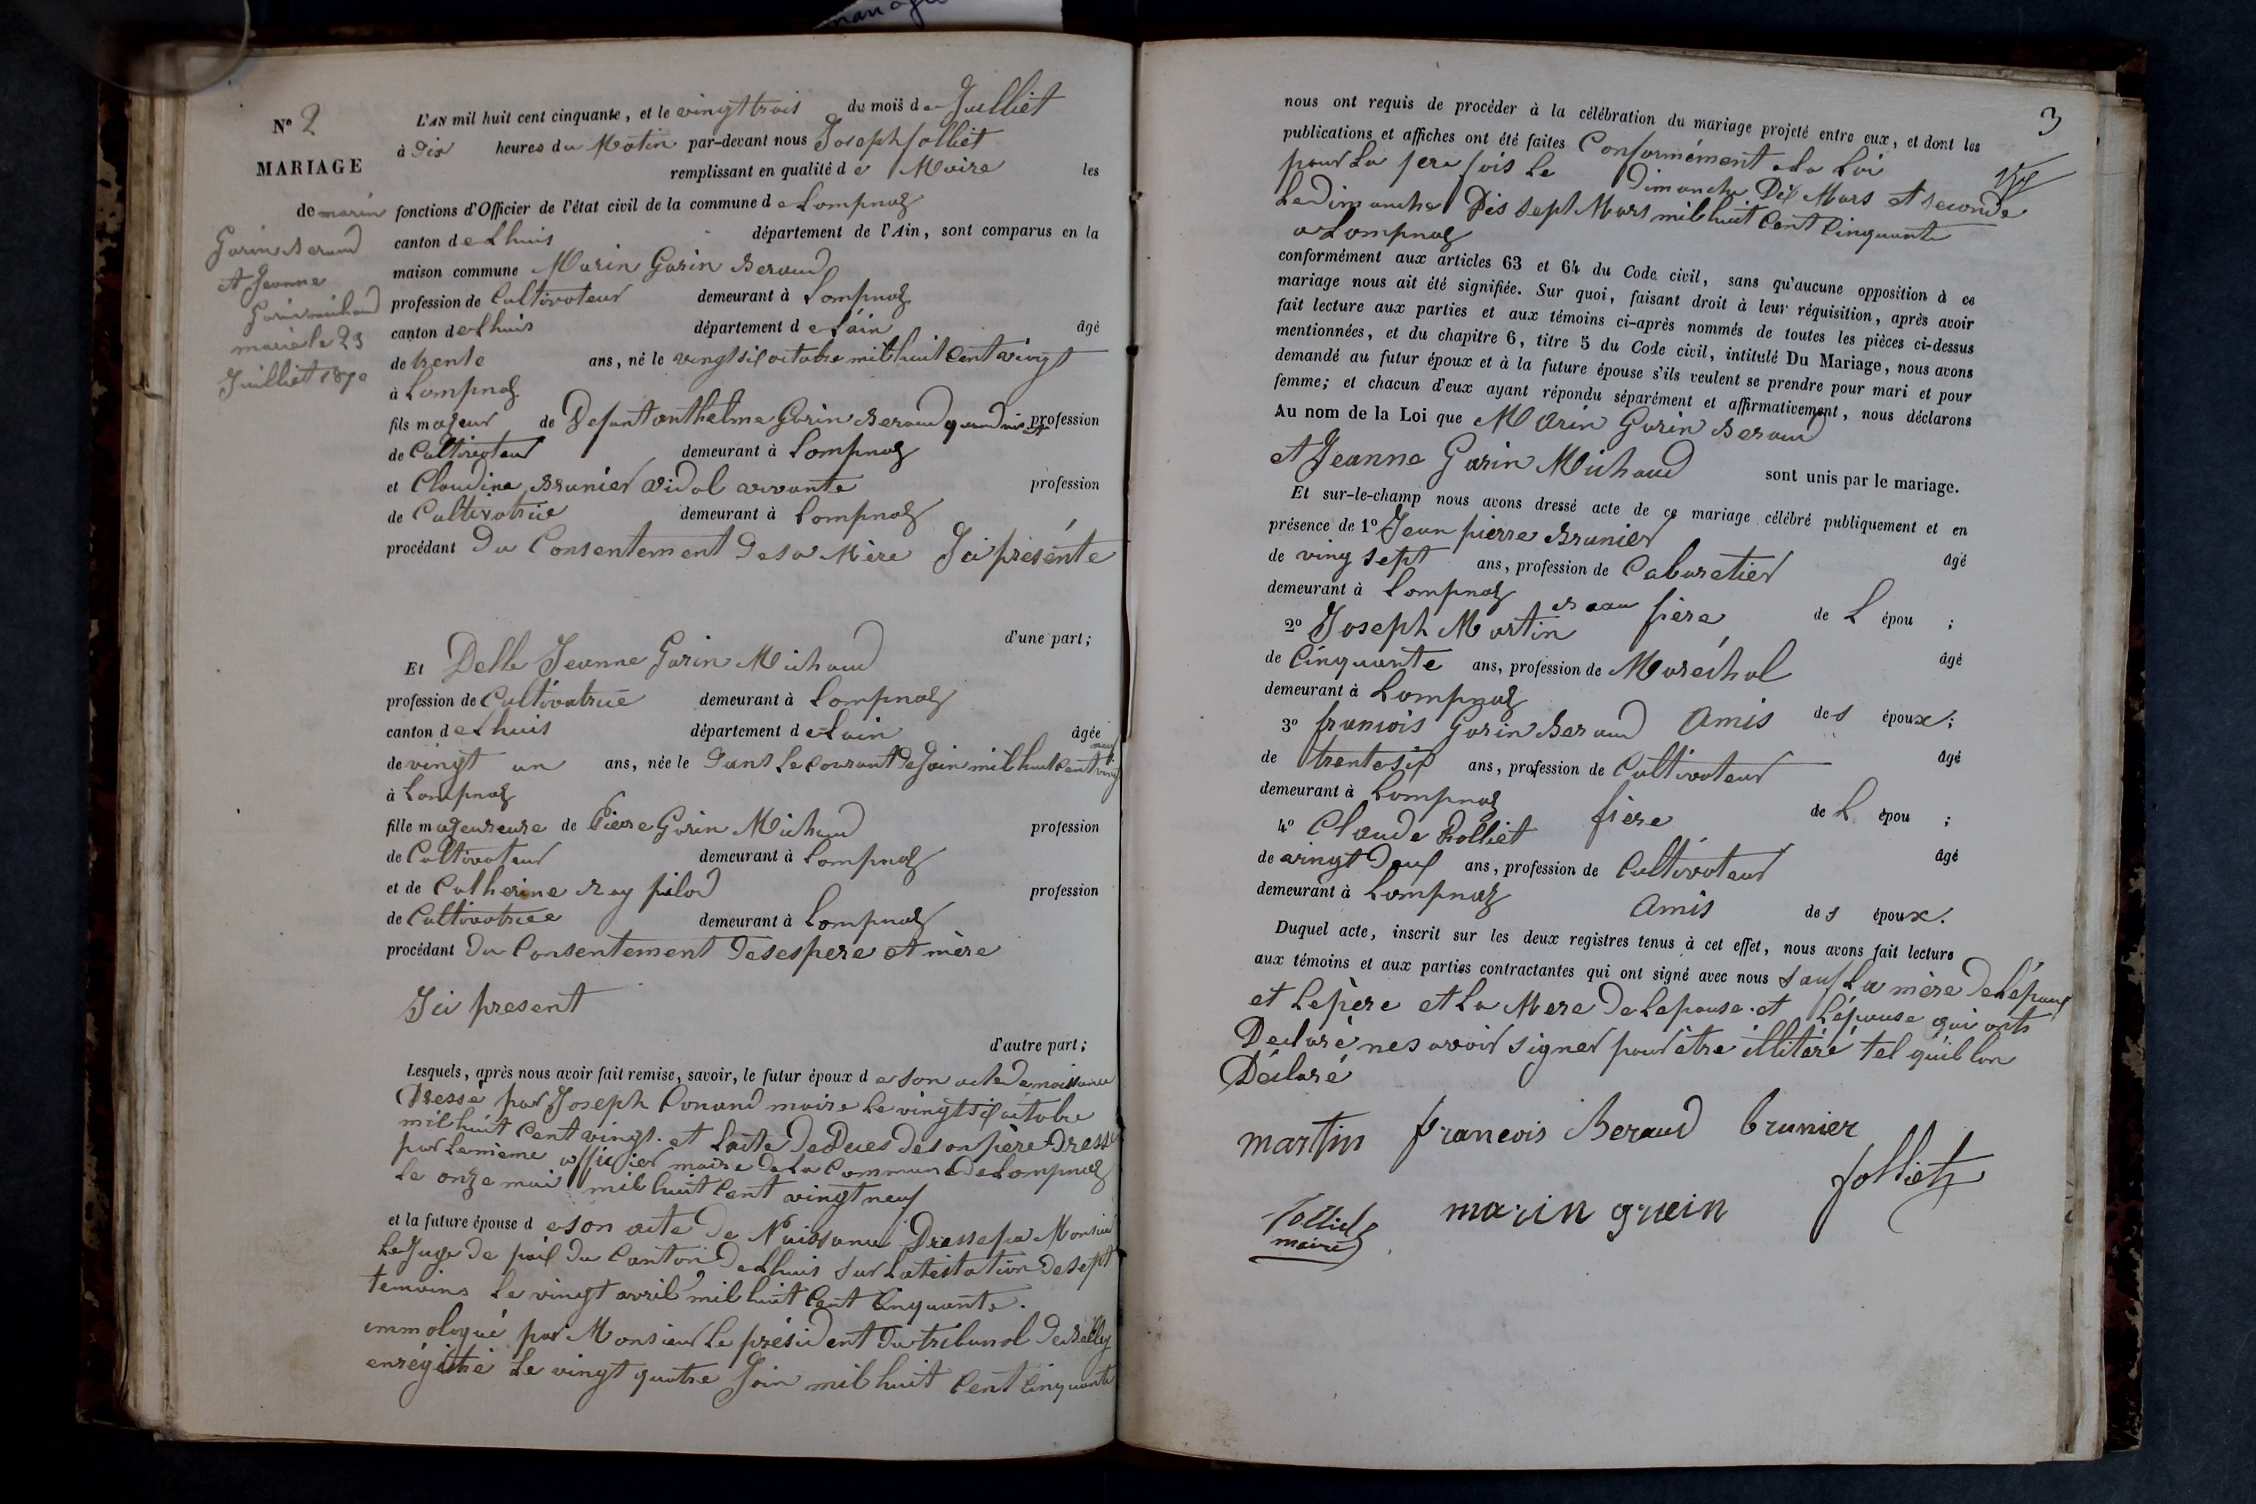 N° 2
MARIAGE
de marin
Garin Beraud
et Jeanne
Garin michaud
marié le 23
Juilliet 1850
L'AN mil huit cent cinquante, et le vingt trois du mois de Juilliet
à Dix heures du Matin par-devant nous Joseph Jolliet
remplissant en qualité de Maire les
fonctions d'Officier de l'état civil de la commune de Lompnaz
canton de Lhuis département de l'Ain, sont comparus en la
maison commune Marin Garin Beraud
profession de Cultivateur demeurant à Lompnaz
canton de Lhuis département de Láin âgé
de trente ans, né le vingt six octobre mil huit Cent vingt
à Lompnaz
fils majeur de Defunt anthelme Garin Beraud quand vivait profession
de Cultivateur demeurant à Lompnaz
et Claudine Brunier vidal vivante profession
de Cultivatrice demeurant à Lompnaz
procédant Du Consentement De sa Mère Ici présente
d'une part;
Et Delle Jeanne Garin Michaud
profession de Cultivatrice demeurant à Lompnaz
canton de Lhuis département de Lain âgée
de vingt un ans, née le Dans Le Courant De Join mil huit Cent vingt neuf
à Lompnaz
fille majeureure de Pierre Garin Michaud profession
de Cultivateur demeurant à Lompnaz
et de Catherine Rey pilod profession
de Cultivatrice demeurant à Lompnaz
procédant Du Consentement De ses pere et mère
Ici present
d'autre part;
Lesquels, après nous avoir fait remise, savoir, le futur époux de son acte De naissance
Dressé par Joseph Conand maire Le vingt six octobre
mil huit Cent vingt. et Lacte De Deces De son père Dressé
par Le même officier maire De La Commune De Lompnaz
Le onze mai mil huit Cent vingt neuf
et la future épouse de son acte De Naissance Dresse par Monsieur
Le Juge De paix Du Canton De Lhuis sur Latestation De sept
temoins Le vingt avril mil huit Cent Cinquante.
ommologué par Monsieur Le président Du tribunal De Belley
enrégitré Le vingt quatre Join mil huit Cent Cinquante
3
nous ont requis de procéder à la célébration du mariage projeté entre eux, et dont les
publications et affiches ont été faites Conformément a La Loi
pour La 1ere fois Le Dimanche Dix Mars et seconde
Le Dimanche Dis sept Mars mil huit Cent Cinquante
a Lompnaz
conformément aux articles 63 et 64 du Code civil, sans qu'aucune opposition à ce
mariage nous ait été signifiée. Sur quoi, faisant droit à leur réquisition, après avoir
fait lecture aux parties et aux témoins ci-après nommés de toutes les pièces ci-dessus
mentionnées, et du chapitre 6, titre 5 du Code civil, intitulé Du Mariage, nous avons
demandé au futur époux et à la future épouse s'ils veulent se prendre pour mari et pour
femme; et chacun d'eux ayant répondu séparément et affirmativement, nous déclarons
Au nom de la Loi que Marin Garin Beraud
et Jeanne Garin Michaud sont unis par le mariage.
Et sur-le-champ nous avons dressé acte de ce mariage célébré publiquement et en
présence de 1° Jean pierre Brunier âgé
de ving sept ans, profession de Cabaretier
demeurant à Lompnaz Beau frère de L épou ;
2° Joseph Martin âgé
de Cinquante ans, profession de Maréchal
demeurant à Lompnaz Amis des époux;
3° francois Garin Beraud âgé
de trente six ans, profession de Cultivateur
demeurant à Lompnaz frère de L épou ;
4° Claude Rolliet âgé
de vingt Deux ans, profession de Cultivateur
demeurant à Lompnaz Amis des époux.
Duquel acte, inscrit sur les deux registres tenus à cet effet, nous avons fait lecture
aux témoins et aux parties contractantes qui ont signé avec nous sauf La mère De Lépoux
et Le père et La Mere De Lepouse. et Lépouse qui onts
Declaré ne savoir signer pour être illitéré tel quil lon
Déclaré
martin francois Beraud brunier
Jolliet
marin garin
maire